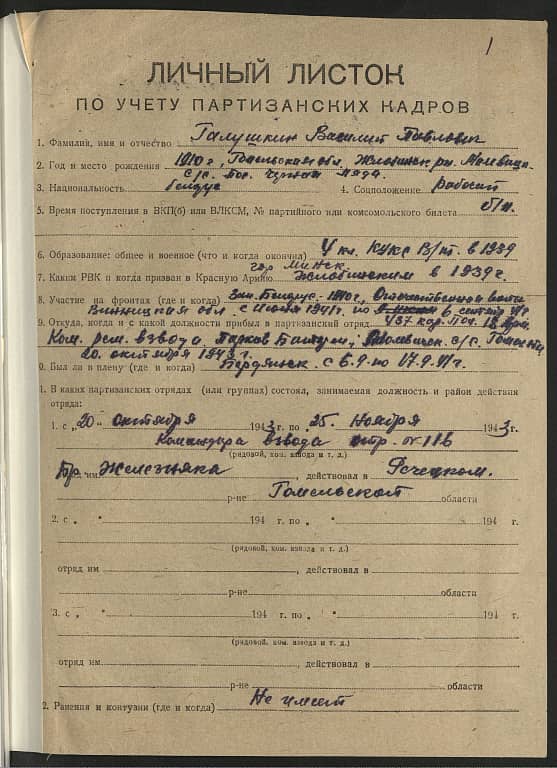 1
ЛИЧНЫЙ ЛИСТОК
ПО УЧЕТУ ПАРТИЗАНСКИХ КАДРОВ
1. Фамилия, имя и отчество Галушкин Василий Павлович
2. Год и место рождения 1910 г, Гомельская обл. Жлобинск. рн.
с/с. пос. Черная
3. Национальность белорус 4. Соцположение рабочий
5. Время поступления в ВКП(б) или ВЛКСМ, № партийного или комсомольского билета б/п.
6. Образование: общее и военное (что и когда окончил) 4 кл. КУКС в 1939
гор Минск
7. Каким РВК и когда призван в Красную Армию Жлобинским в 1939 г.
8. Участие на фронтах (где и когда) Зап. Белорус- Отечественной войны
Винницкая обл. с Июня 1941 г. по 6 сентяб
9. Откуда, когда и с какой должности прибыл в партизанский отряд 437 кор.
Ком. рем. взвода с/с.
20. октября 1943 г.
0. Был ли в плену (где и когда) Бердянск. с 6.9. по 17.9.
1. В каких партизанских отрядах (или группах) состоял, занимаемая должность и район действия
отряда:
1. с „20“ октября 1943 г. по 25. Ноября 1943 г.
Командира взвода отр. 116
(рядовой, ком. взвода и т. д.)
бр. им Железняка, действовал в Речецком.
р-не Гомельской области
2. с „ “ 194 г. по „ “ 194 г.
(рядовой, ком. взвода и т. д.)
отряд им , действовал в
р-не области
3. с „ “ 194 г. по „ “ 194 г.
(рядовой, ком. взвода и т. д.)
отряд им , действовал в
р-не области
2. Ранения и контузии (где и когда) Не имеет